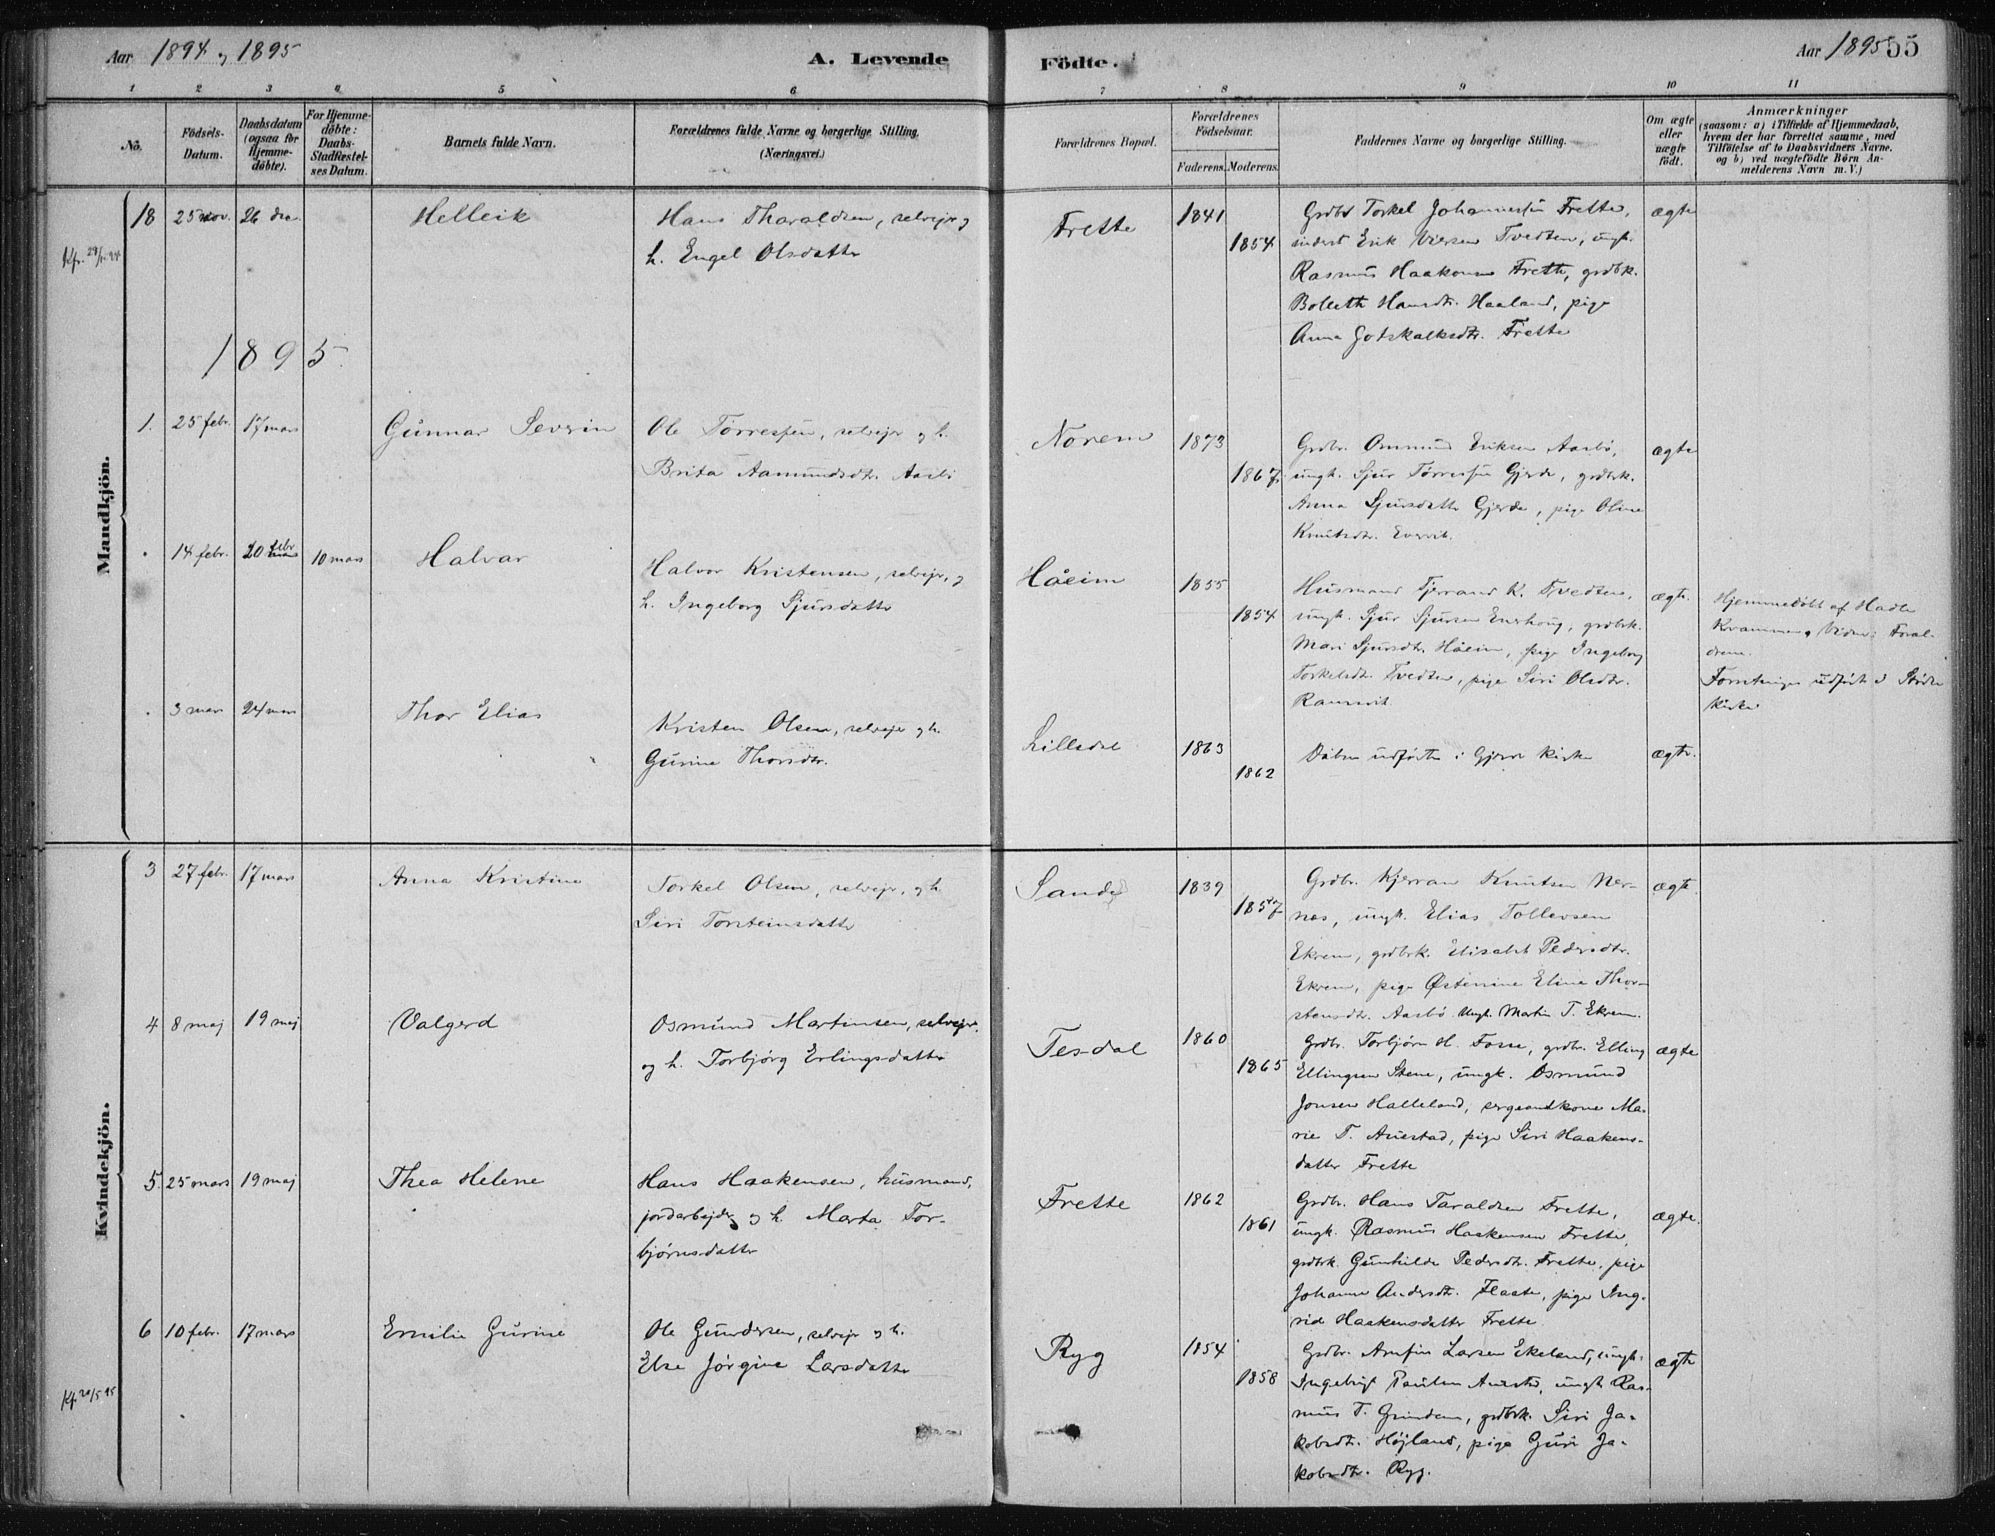 Aar 1894 og 1895
A. Levende
Födte.
Aar 1895
55
1 2 3 4 5 6 7 8 9 10 11
No.
Födsels-Datum.
Daabsdatum (ogsaa for Hjemme-döbte).
For Hjemme-döbte: Daabs-Stadfæstel-ses Datum.
Barnets fulde Navn.
Forældrenes fulde Navne og borgerlige Stilling. (Næringsvei.)
Forældrenes Bopæl.
Forældrenes Födselsaar.
Faderens. Moderens.
Faddernes Navne og borgerlige Stilling.
Om ægte eller uægte födt.
Anmærkninger
(saasom: a) i Tilfælde af Hjemmedaab,
hvem der har forrettet samme, med
Tilföielse af to Daabsvidners Navne.
og b) ved uægtefödte Börn An-
melderens Navn m. V.)
Mandkjön.
18 25 nov. 26 dec. Helleik
Hans Tharaldsen, selvejer og
h. Engel Olsdatter
Frette 1841 1854
Grdbr Torkel Johannessen Frette,
inderst Erik Tvedten, ungk.
Rasmus Haakonsen Frette, grdbk.
Bolleth Hansdtr. Haaland, pige
Anna Gotskalksdtr. Frette
ægte
1895.
1. 25 febr. 17 mars Gunnar Severin
Ole Tørressen, selvejer og h.
Brita Aamundsdtr. Aasbö
Norem 1873 1867
Grdbr. Ommund Eriksen Aasbö,
ungk. Sjur Tørressen Gjerde, grdbrk.
Anna Sjursdatter Gjerde, pige Oline
Knutsdtr.
ægte
14 febr. 20 febr 10 mars Halvar
Halvor Kristensen, selvejer, og
h. Ingeborg Sjursdatter
Håeim 1855 1854
Husmand Tjerrand K. Tvedten,
ungk. Sjur Sjursen, grdbrk.
Mari Sjursdtr. Håeim, pige Ingeborg
Torkelsdtr. Tvedten, pige Siri Olsdtr.
Ramsvik.
ægte.
Hjemmedöbt af Hadle
Kvammen, Vidner: Foræl-
drene.
Forretningen udført i
kirke
3 mars 24 mars Thor Elias
Kristen Olsen, selvejer og h.
Gurine Thorsdtr.
Lilledal 1863 1862
Dåben udførtes i kirke
ægte.
Kvindekjön.
3 27 febr. 17 mars Anna Kristine
Torkel Olsen, selvejer, og h.
Siri Torsteinsdatter
Sande 1839 1857
Grdbr. Kjerran Knutsen Ner-
nes, ungk. Elias Tollevsen
Ekrem, grdbrk. Elisabet Pedersdtr.
Ekrem, pige Østenine Eline Thor-
stensdtr. Aasbö. Ungk. Martin T. Ekrem.
ægte.
4 8 maj 19 maj Valgerd
Osmund Martinsen, selvejer.
og h. Torbjørg Erlingsdatter
Tesdal 1860 1865
Grdbr. Torbjørn H. Fosse, grdbr. Elling
Ellingsen Stene, ungk. Osmund
Jonsen Halleland, sergeantkone Ma-
rie T. Auestad, pige Siri Haakens-
datter Frette
ægte
5. 25 mars 19 maj Thea Helene
Hans Haakensen, husmand,
jordarbejder, og h. Marta Tor-
bjørnsdatter
Frette 1862 1861
Grdbr. Hans Taraldsen Frette,
ungk. Rasmus Haakensen Frette,
grdbrk. Gunhilde Pedersdtr. Frette, pige
Johanne Andersdtr. Flaate, pige Ing-
rid Haakensdatter Frette
ægte.
6 10 febr. 17 mars Emilie Gurine
Ole Gundersen, selvejer og h.
Else Jørgine Larsdatter
Ryg 1854 1858
Grdbr. Arnfin Larsen Ekeland, ungk.
Paulsen, ungk Ras-
mus T. Grindem, grdbrk. Siri Ja-
kobsdtr. Højland, pige Guri Ja-
kobsdtr. Ryg.
ægte